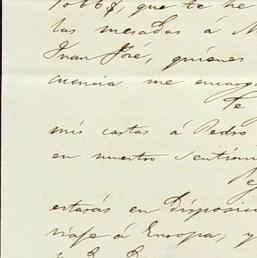 que te he
las mesadas á M
Juan José, quiénes
cuencia me encarg
Te
mis cartas á Pedro
en nuestro sentim
estarás en disposic
viaje á Europa, y